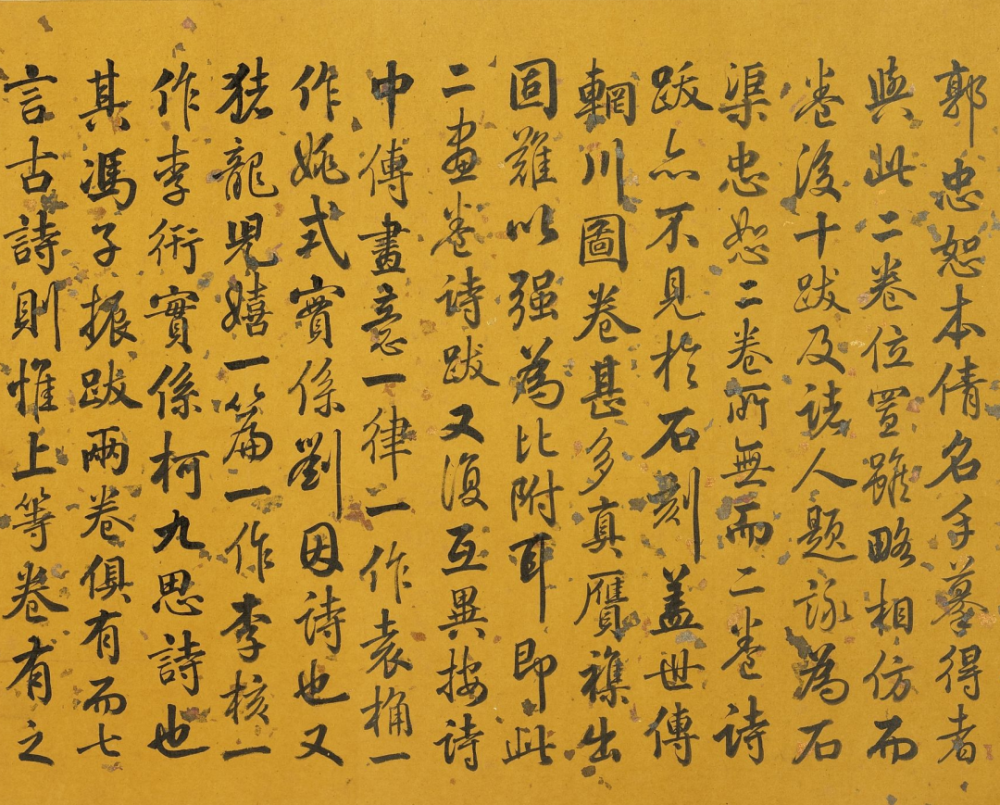 郭忠恕本倩名手摹得者
與此二卷位置雖略相仿而
卷後十跋及諸人題詠為石
渠忠恕二卷所無而二卷詩
跋亦不見於石刻盖世傳
輞川圖卷甚多真贋襍出
固難以强為比附耳即此
二畫卷詩跋又復互異按詩
中傳畫意一律一作袁桷一
作姚式實係劉因詩也又
猪龍兒嬉一篇一作李核一
作李衎實係柯九思詩也
其馮子振跋兩卷俱有而七
言古詩則惟上等卷有之